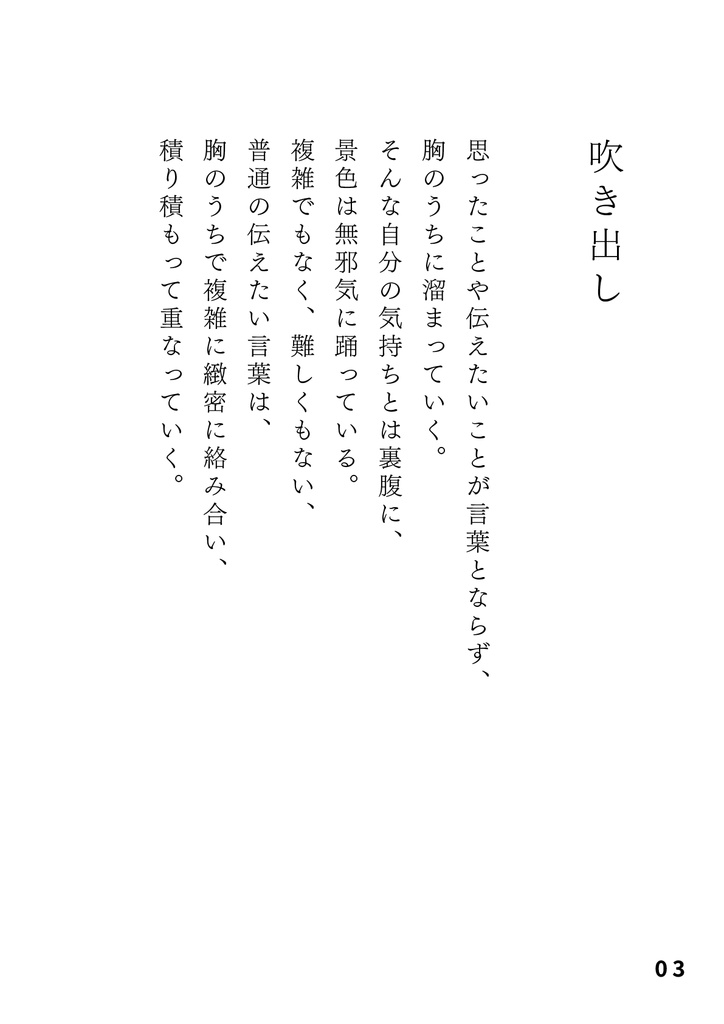 吹き出し
思ったことや伝えたいことが言葉とならず、
胸のうちに溜まっていく。
そんな自分の気持ちとは裏腹に、
景色は無邪気に踊っている。
複雑でもなく、難しくもない、
普通の伝えたい言葉は、
胸のうちで複雑に緻密に絡み合い、
積り積もって重なっていく。
03